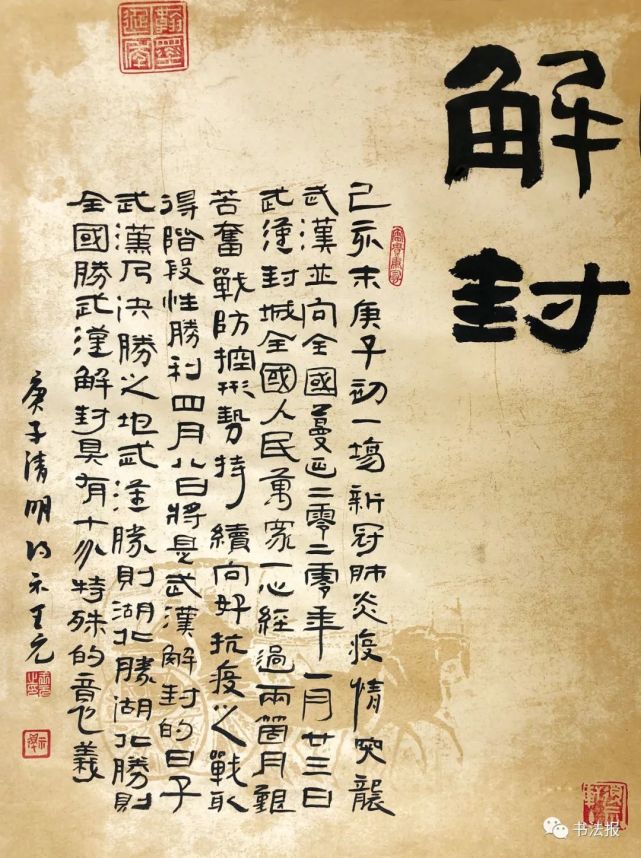 解封
翰墨延年
己亥末庚子初一場新冠肺炎疫情突襲
武漢並向全國蔓延二零二零年一月廿三日
武漢封城全國人民萬眾一心經過兩箇月艱
苦奮戰防控形勢持續向好抗疫之戰取
得階段性勝利四月八日將是武漢解封的日子
武漢乃決勝之地武漢勝則湖北勝湖北勝則
全國勝武漢解封具有十分特殊的意義
庚子清明
书法报